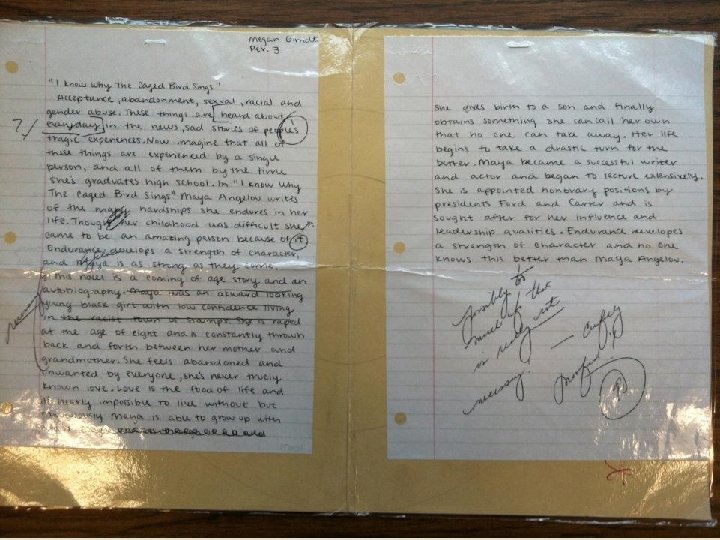 Megan
Per. 3
"I Know Why The Caged Bird Sings"
Acceptance, abandonment, sexual, racial and
gender abuse. These things are heard about
everyday in the news, sad stories of peoples
tragic experiences. Now imagine that all of
these things are experienced by a single
person, and all of them by the time
she's graduates high school. In "I know why
The Caged Bird Sings" Maya Angelou writes
of the many hardships she endures in her
life. Though her childhood was difficult she
came to be an amazing person because of it
Endurance develops a strength of character,
and Maya is as strong as they come.
This novel is a coming of age story and an
autobiography. Maya was an awkward looking
young black girl with low confidence living
in the racist town of Stamps. She is raped
at the age of eight and is constantly thrown
back and forth between her mother and
grandmother. She feels abandoned and
unwanted by everyone, she's never truly
known love. Love is the food of life and
is nearly impossible to live without but
Maya is able to grow up with
she gives birth to a son and finally
obtains something she can call her own
that no one can take away. Her life
begins to take a drastic turn for the
better. Maya became a sucessful writer
and actor and began to lecture extensively.
She is appointed honorary positions by
presidents Ford and Carter and is
sought after for her influence and
leadership qualities. Endurance developes
a strength of character and no one
knows this better than Maya Angelou.
?
much of this
is really not
necessary.